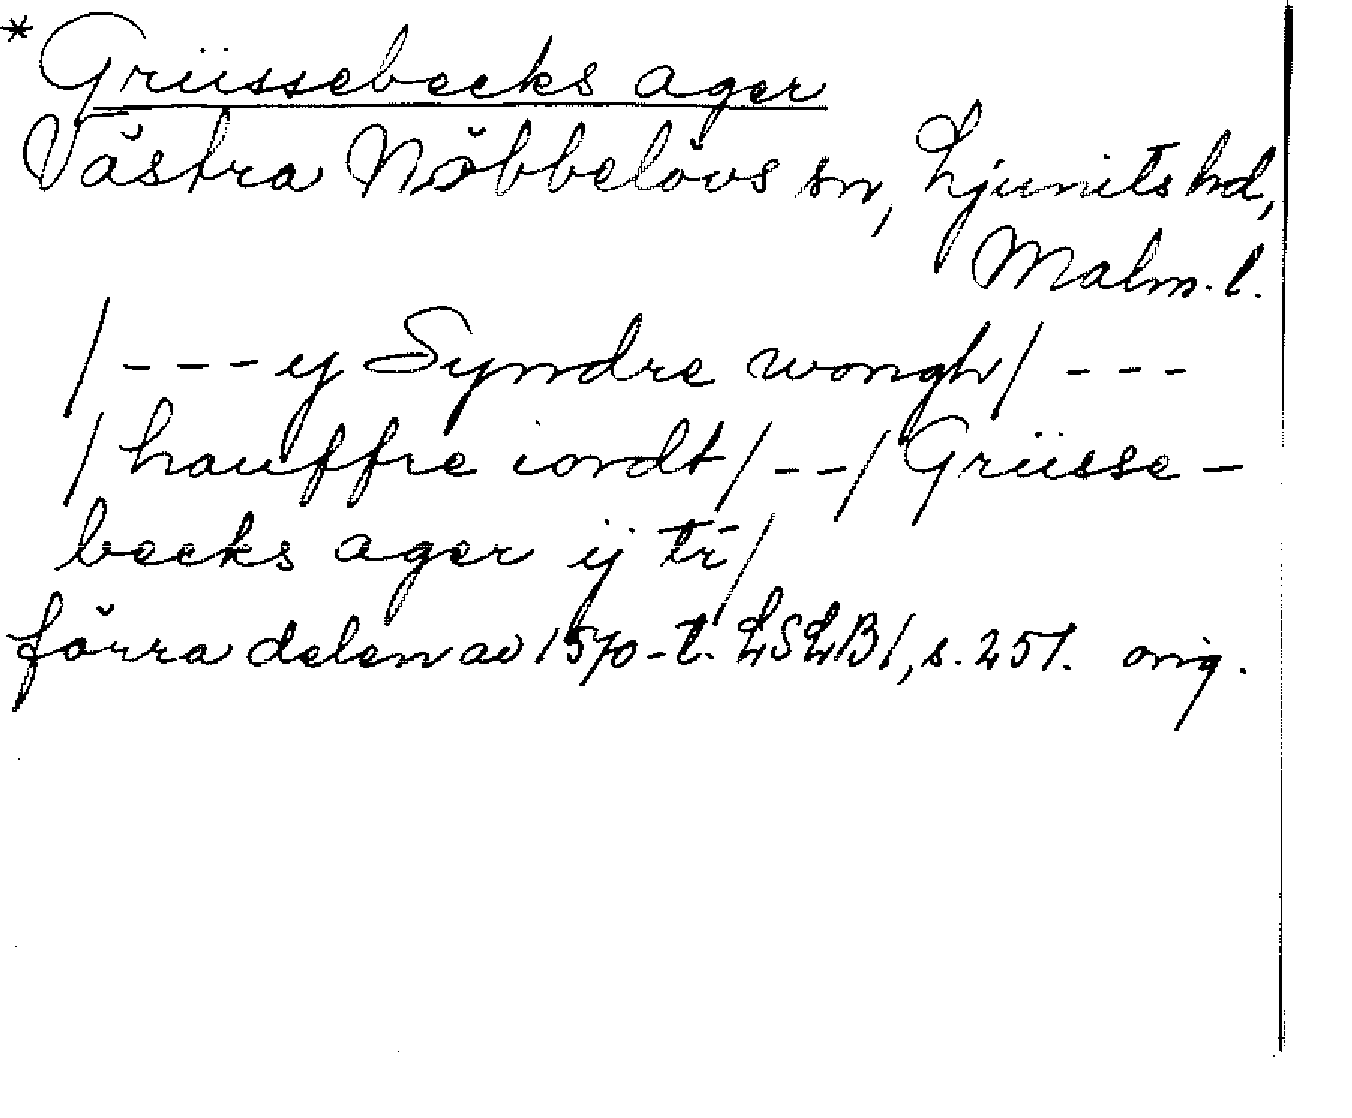 *Grüssebecks ager
Västra Nöbbelövs sn, Ljunits hd,
Malm. l.
/---y Syndre wongh/ ---
/hauffre iordt/--/Grüsse-
becks ager ij tr̄/
förra delen av 1570-t. LSLB1, s. 251. orig.